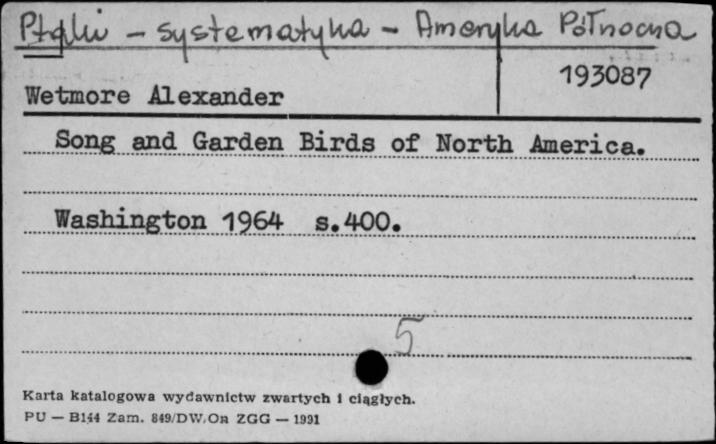 Ptaki - systematyka - Ameryka Północna
193087
Wetmore Alexander
Song and Garden Birds of North America.
Washington 1964 s.400.
5
Karta katalogowa wydawnictw zwartych i ciągłych.
PU — B144 Zam. 849/DW/On ZGG — 1991